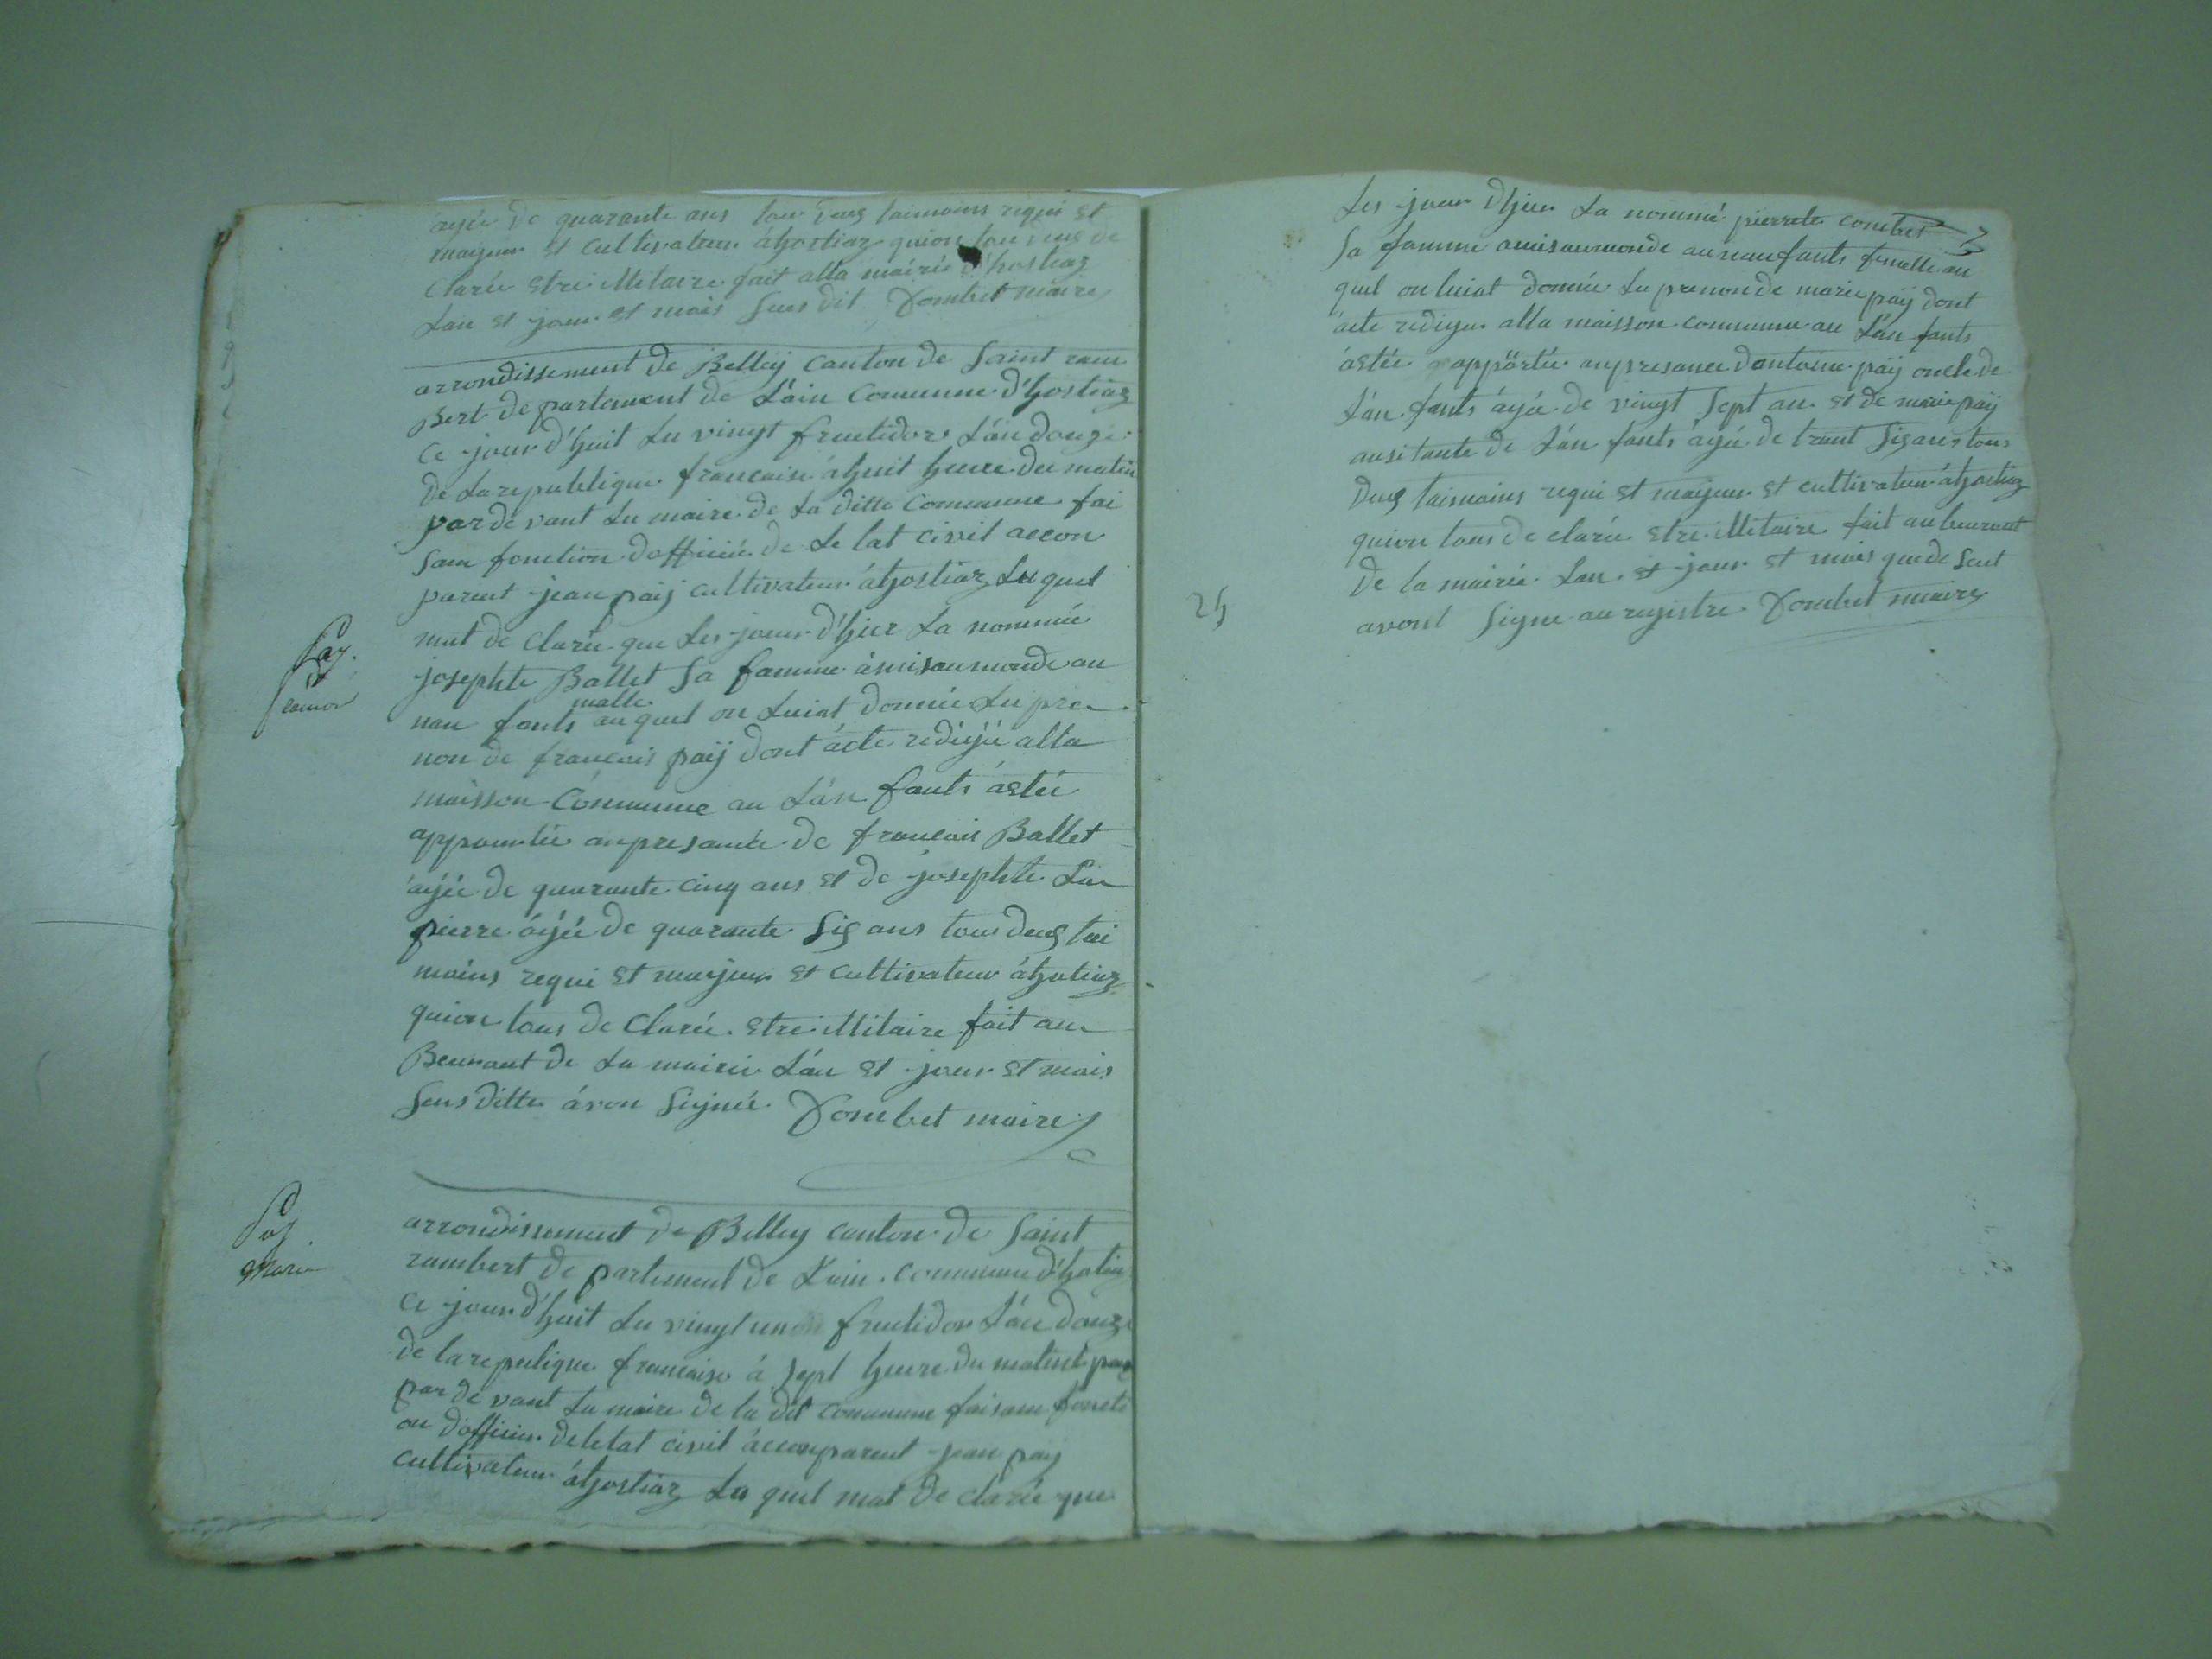 ayée de quarante ans tou deus taimoins requi et
majeur et cultivateur áhostiaz quion tou deus de
clarée etre illitaire fait alla mairie d'hostiaz
Lan et jour et mois sus dit Dombet maire
arrondissement de Belley canton de saint ram
Bert departement de L'ain Comunne d'hostiaz
ce jour d'huit Lu vingt fructidor L'án douze
de La republique francaise áhuit heure du matin
par de vant Lu maire de La ditte Commune fai
sam fonction dofficiée de Le tat civil accon
parut jean paÿ cultivateur áhostiaz Luquel
mat de clarée que Les jour d'hier La nommée
josephte Ballet sa famme ámisaumonde au
malle
nau fants auquel on Luiat donnée Lu pre
non de francois paÿ dont ácte redigé alla
maisson Commune au L'án fants ástée
appourtée anpresance de francois Ballet
áyée de quarante cinq ans et de josephte La
pierre áyée de quarante sis ans tou deus tai
moins requi et majeur et cultivateur áhotiaz
quion tous de clarée etre illitaire fait au
Beuraut de La mairie L'án et jour et mois
sus ditte ávon signée Dombet maire
Paÿ
francois
arrondissement de Belley canton de saint
rambert de partement de L'ain commune d'hotiaz
ce jour d'huit Lu vingt un fructidor L'án douze
de la repulique francaise á sept heure du matint
par de vant Lu maire de la dit commune faisam foncti
on dofficier deletat civil ácconparut jean paÿ
cultivateur áhostiaz Lu quel mat de clarée que
Paÿ
Marie
Les jour d'hier La nommé pierrete combet
sa famme amisaumonde au nau fants femelle au
quel on luiat donnée Lu prenon de marie paÿ dont
ácte redigee alla maisson commune au L'án fants
ástée appörtée anpresance dantoine paÿ oncle de
L'án fants áyée de vingt sept an et de marie paÿ
ausi tante de L'án fants áyée de trant sis ans tous
deus taimoins requi et majeur et cultivateur áhostiaz
quion tous de clarée etre illitaire fait au beuraut
de la mairie Lan et jour et mois que de sut
avont signe au registre Dombet maire
3
25